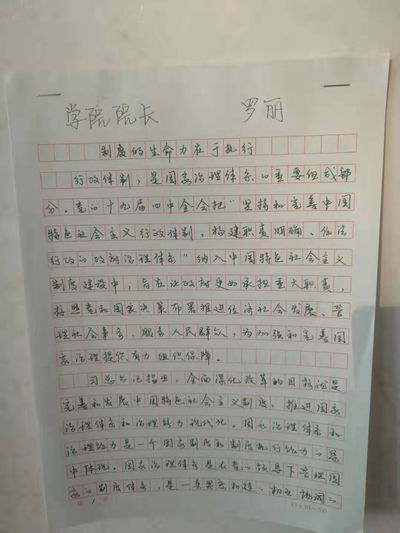 学院院长 罗丽
制度的生命力在于执行
行政体制，是国家治理体系的重要组成部
分。党的十九届四中全会把“坚持和完善中国
特色社会主义行政体制，构建职责明确、依法
行政的政府治理体系”纳入中国特色社会主义
制度建设中，旨在让政府更好承担重大职责，
按照党和国家决策布署推进经济社会发展、管
理社会事务、服务人民群众，为加强和完善国
家治理提供有力组织保障。
习总书记指出，全面深化改革的目标就是
完善和发展中国特色社会主义制度，推进国家
治理体系和治理能力现代化。国家治理体系和
治理能力是一个国家制度和制度执行能力的集
中体现。国家治理体系是在党的领导下管理国
家的制度体系，是一套紧密相连、相互协调的
15×20=300